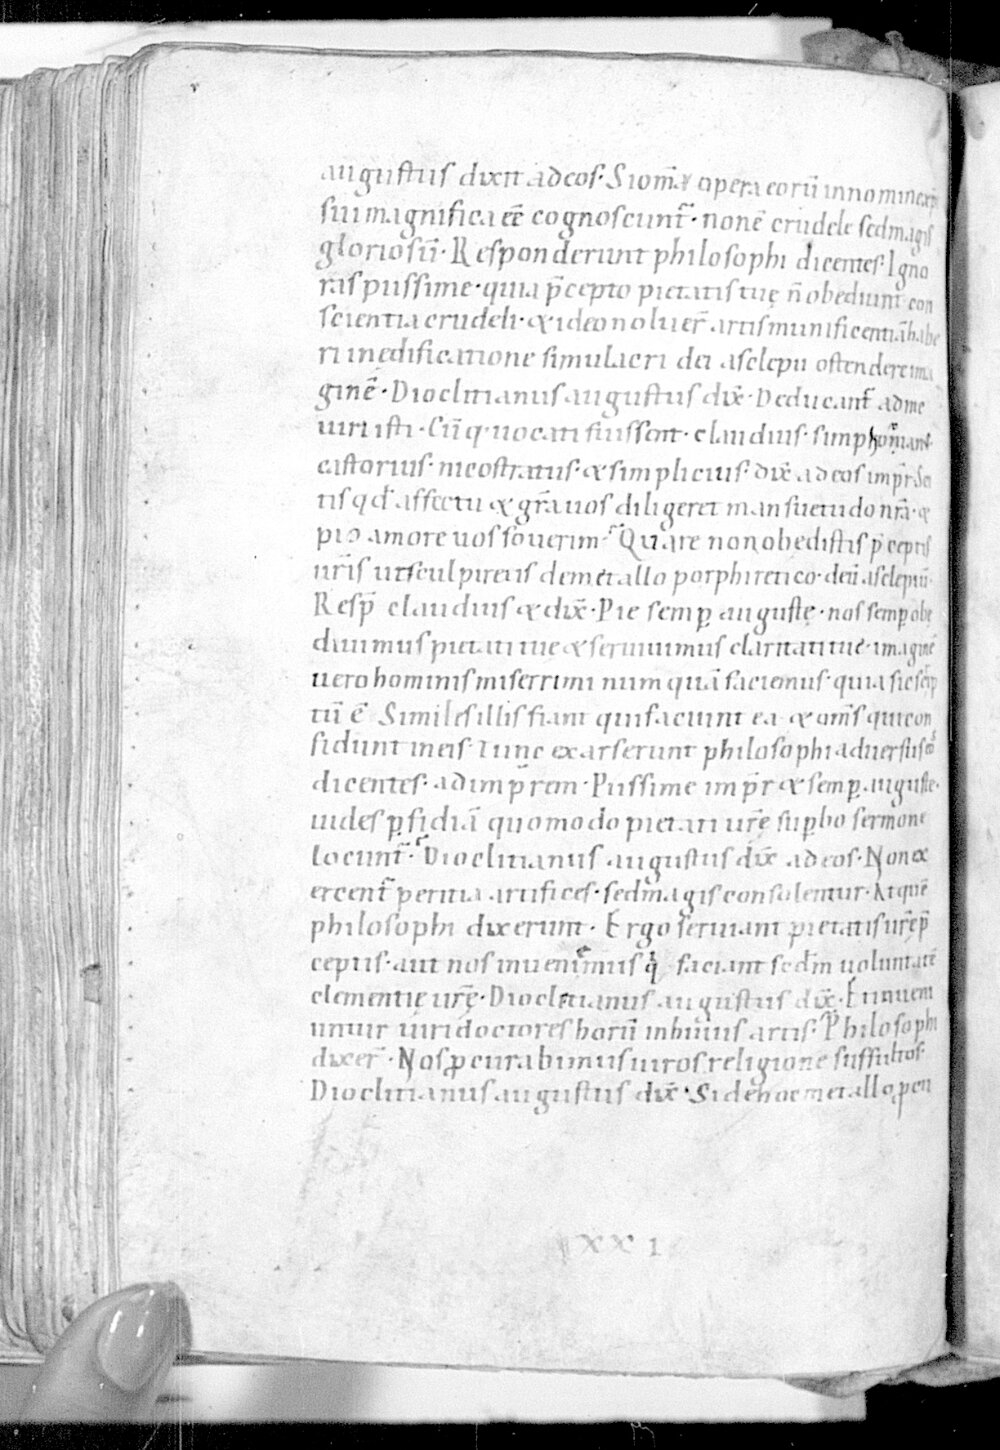 augustus dixit ad eos· Si om̄a opera eorū in nomine xp̄i
sui magnifica eē cognoscunt᷑· non ē crudele sed magis
gloriosū· Responderunt philosophi dicentes· Igno
ras piissime· quia p̄cepto pietatis tuę ñ obediunt con
scientia crudeli· & ideo noluer̄ artis munificentiā habe
ri in edificatione simulacri dei asclepii ostendere ima
ginē· Dioclitianus augustus dix̄· Deducant᷑ ad me
uiri isti· Cūq· uocati fuissent· claudius· simphorianꝰ·
castorius· nicostratus· & simplicius· dix̄ ad eos imp̄r· Sci
tis qd̄ affectu & gr̄a uos diligeret mansuetudo nr̄a· &
pio amore uos fouerim· Quare non obedistis p̄ceptis
nr̄is ut sculpiretis de metallo porphiretico· deū asclepiū·
Resp̄ claudius & dix̄· Pie semp̲ auguste· nos semp̲ obe
diuimus pietati tuę & seruiuimus claritati tuę· imaginē
uero hominis miserrimi numquā faciemus· quia sic sc̄rip
tū ē Similes illis fiant qui faciunt ea· & om̄s qui con
fidunt in eis· Tunc exarserunt philosophi aduersus eos
dicentes· ad imp̄rem· Piissime imp̄r & semp̲ auguste·
uides p̲fidiā quomodo pietati ur̄ę sup̲bo sermone
locunt᷑· Dioclitianus augustus dix̄ ad eos· Non ex
ercent᷑ peritia artifices· sed magis consulentur· At quē
philosophi dixerunt· Ergo seruiant pietatis ur̄ę p̄
ceptis· aut nos inuenimus q̄ faciant sedm̄ uoluntatē
clementię ur̄ę· Dioclitianus augustus dix̄· Et inueni
untur uiri doctores horū inhuius artis· Philosophi
dixer̄· Nos ꝓcurabimus uiros religione suffultos·
Dioclitianus augustus dix̄· Si de hoc metallo ꝓcu
XXI